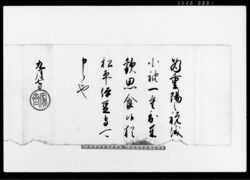 為重陽之祝儀
小袖一重到来
歓思食候猶
松平伊豆守可
申候也
九月七日